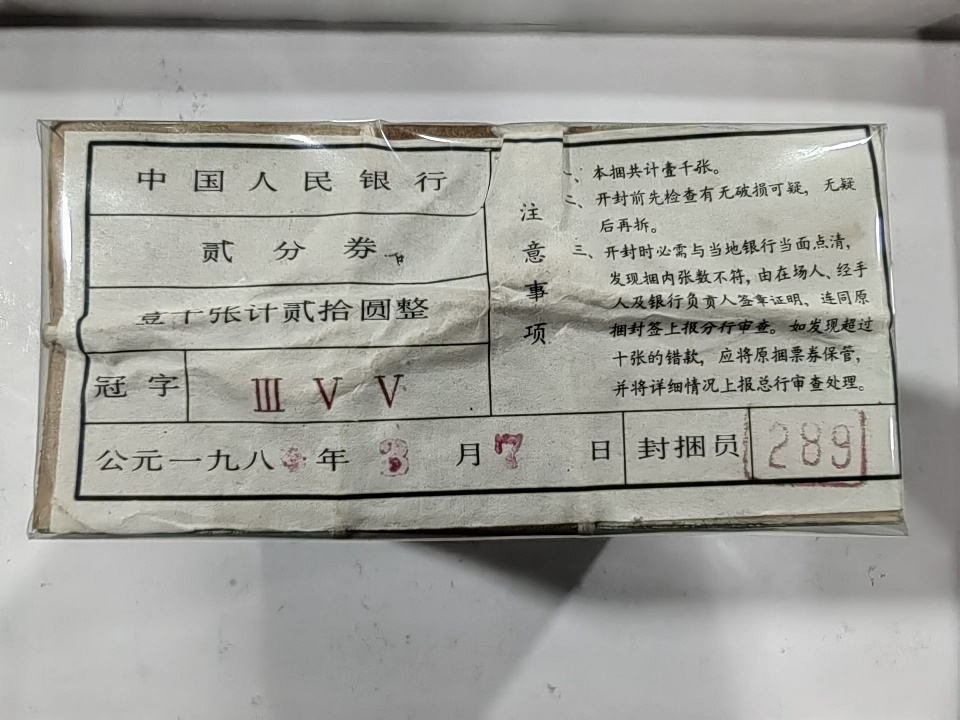 中国人民银行
贰分券
壹千张计贰拾圆整
冠字 Ⅲ Ⅴ Ⅴ
公元一九八 年 3 月 7 日
封捆员 289
注意事项
一、本捆共计壹千张。
二、开封前先检查有无破损可疑，无疑
后再拆。
三、开封时必需与当地银行当面点清，
发现捆内张数不符，由在场人、经手
人及银行负责人签章证明，连同原
捆封签上报分行审查。如发现超过
十张的错款，应将原捆票券保管，
并将详细情况上报总行审查处理。